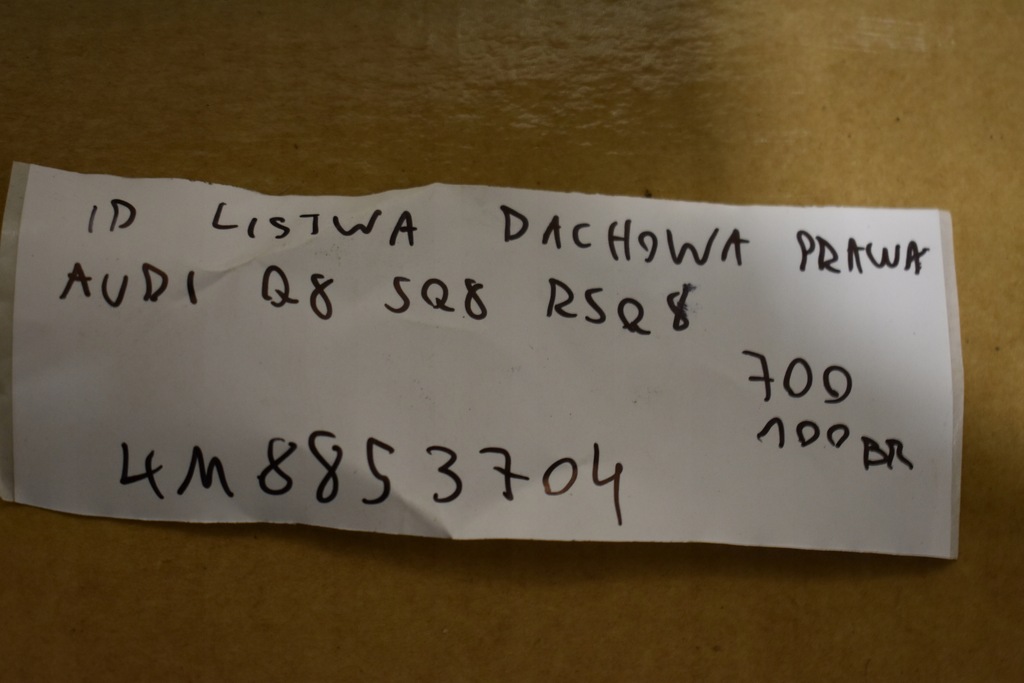 ID LISTWA DACHOWA PRAWA
AUDI Q8 SQ8 RSQ8
700
100 BR
4M8853704